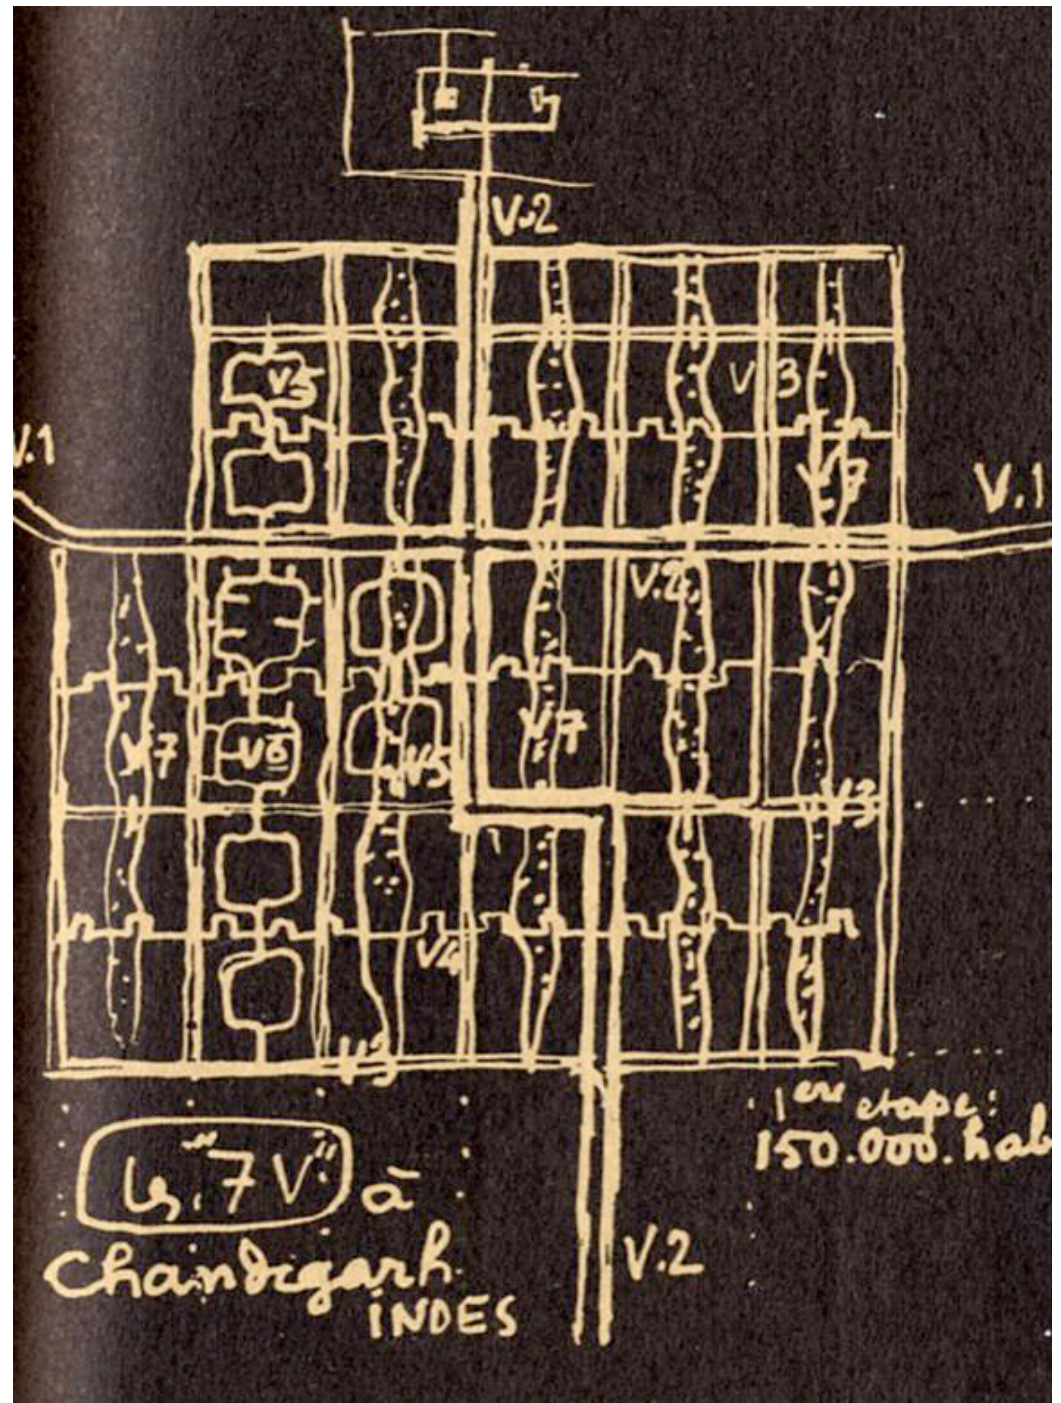 V.2
V5
V3
V.1
V7
V.1
V.2
V7
V6
V5
V7
V3
V4
V3
1ere etape:
150.000.hab
les "7V" à
Chandigarh
INDES
V.2